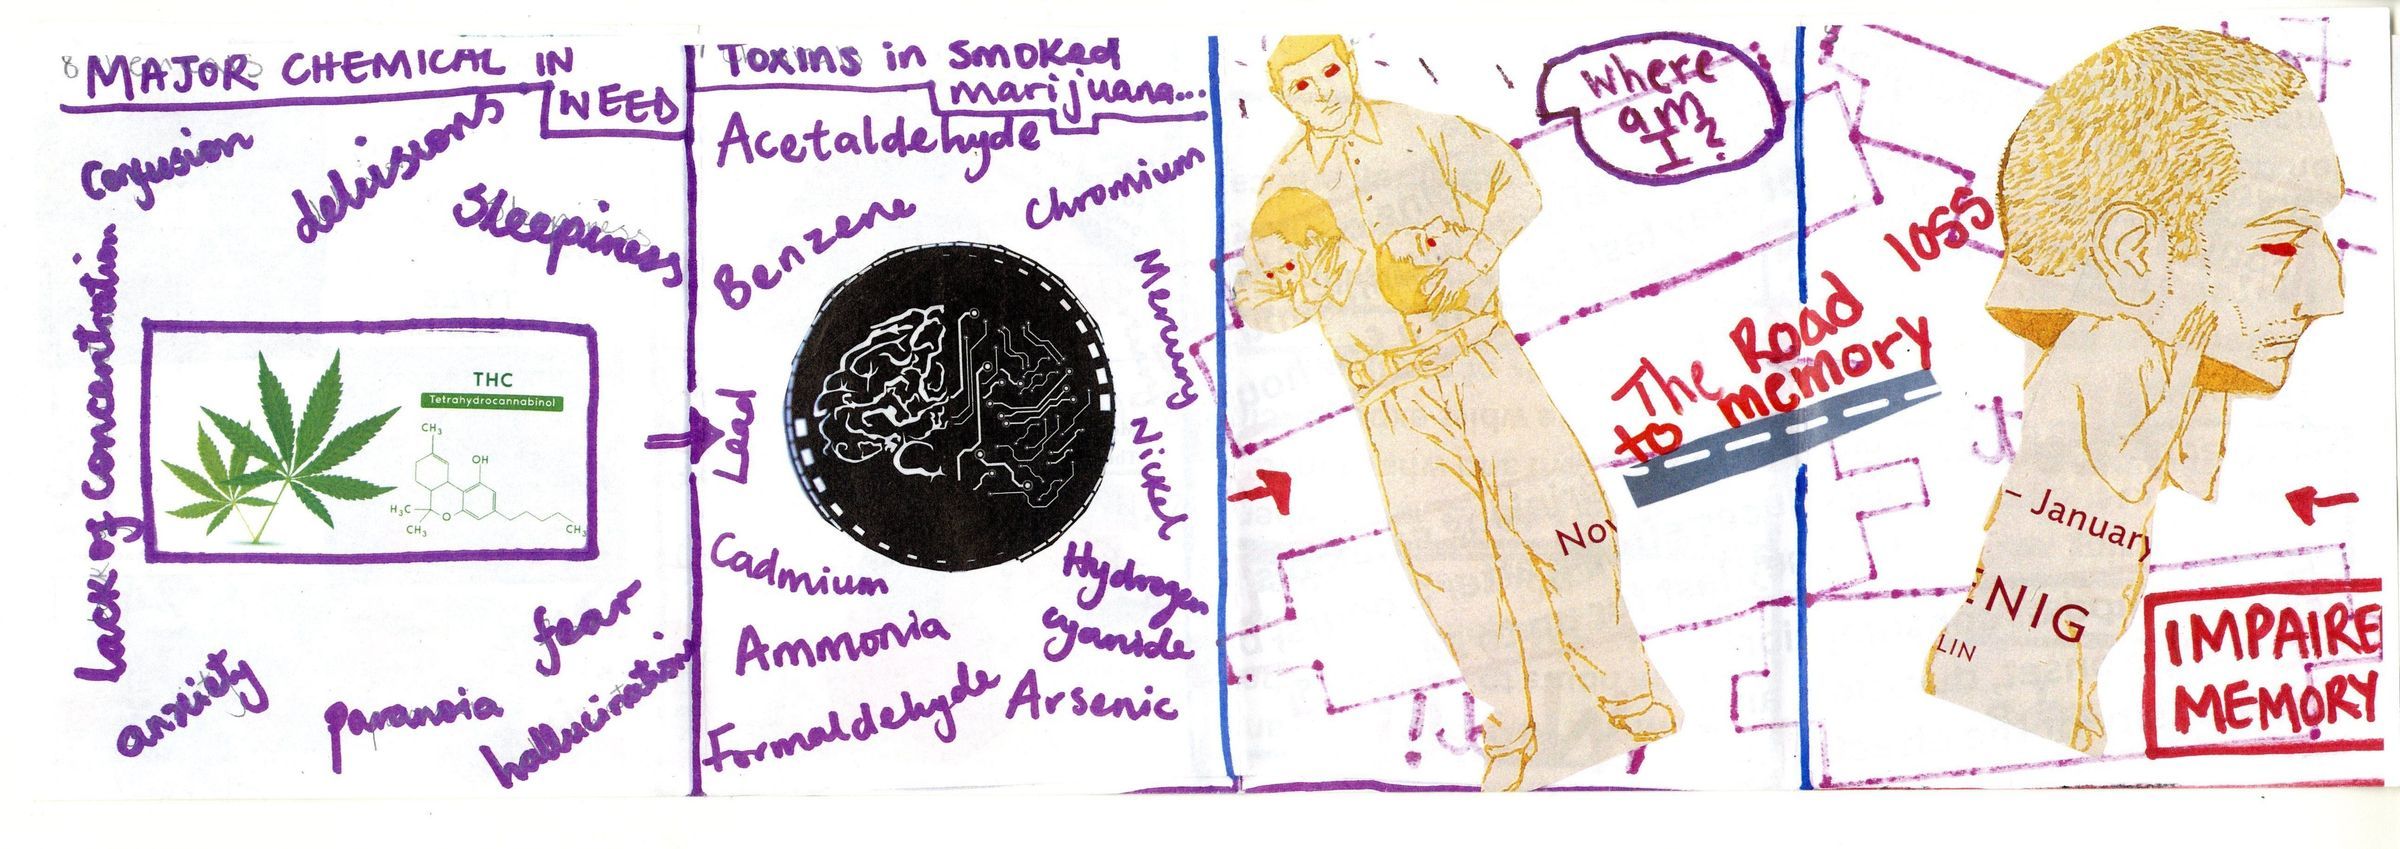 MAJOR CHEMICAL IN
NEED
Confusion
delusions
Sleepiness
Lack of concentration
THC
Tetrahydrocannabinol
CH3
OH
H3C
CH3
O
CH3
anxiety
paranoia
fear
hallucination
Toxins in smoked
marijuana...
Acetaldehyde
Chromium
Benzene
Mercury
Lead
Nickel
Cadmium
Hydrogen
cyanide
Ammonia
Formaldehyde
Arsenic
Where
am
I?
The Road
to memory
loss
Nov
– January
ENIG
LIN
IMPAIRE
MEMORY